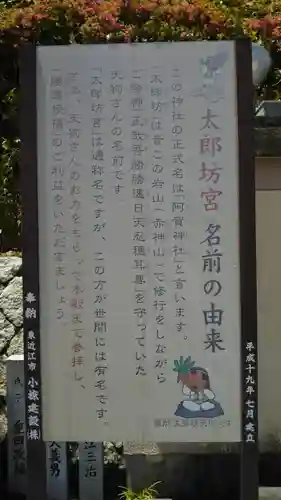 太郎坊宮 名前の由来
この神社の正式名は「阿賀神社」と言います。
「太郎坊」は昔この岩山（赤神山）で修行をしながら
ご祭神「正哉吾勝勝速日天忍穂耳尊」を守っていた
天狗さんの名前です
「太郎坊宮」は通称名ですが、この方が世間には有名です。
天狗さんのお力をもらって本殿まで参拝し、
のご利益をいただきましょう。
平成十九年七月 建立
奉納 東近江市 小梶建設㈱
江三治